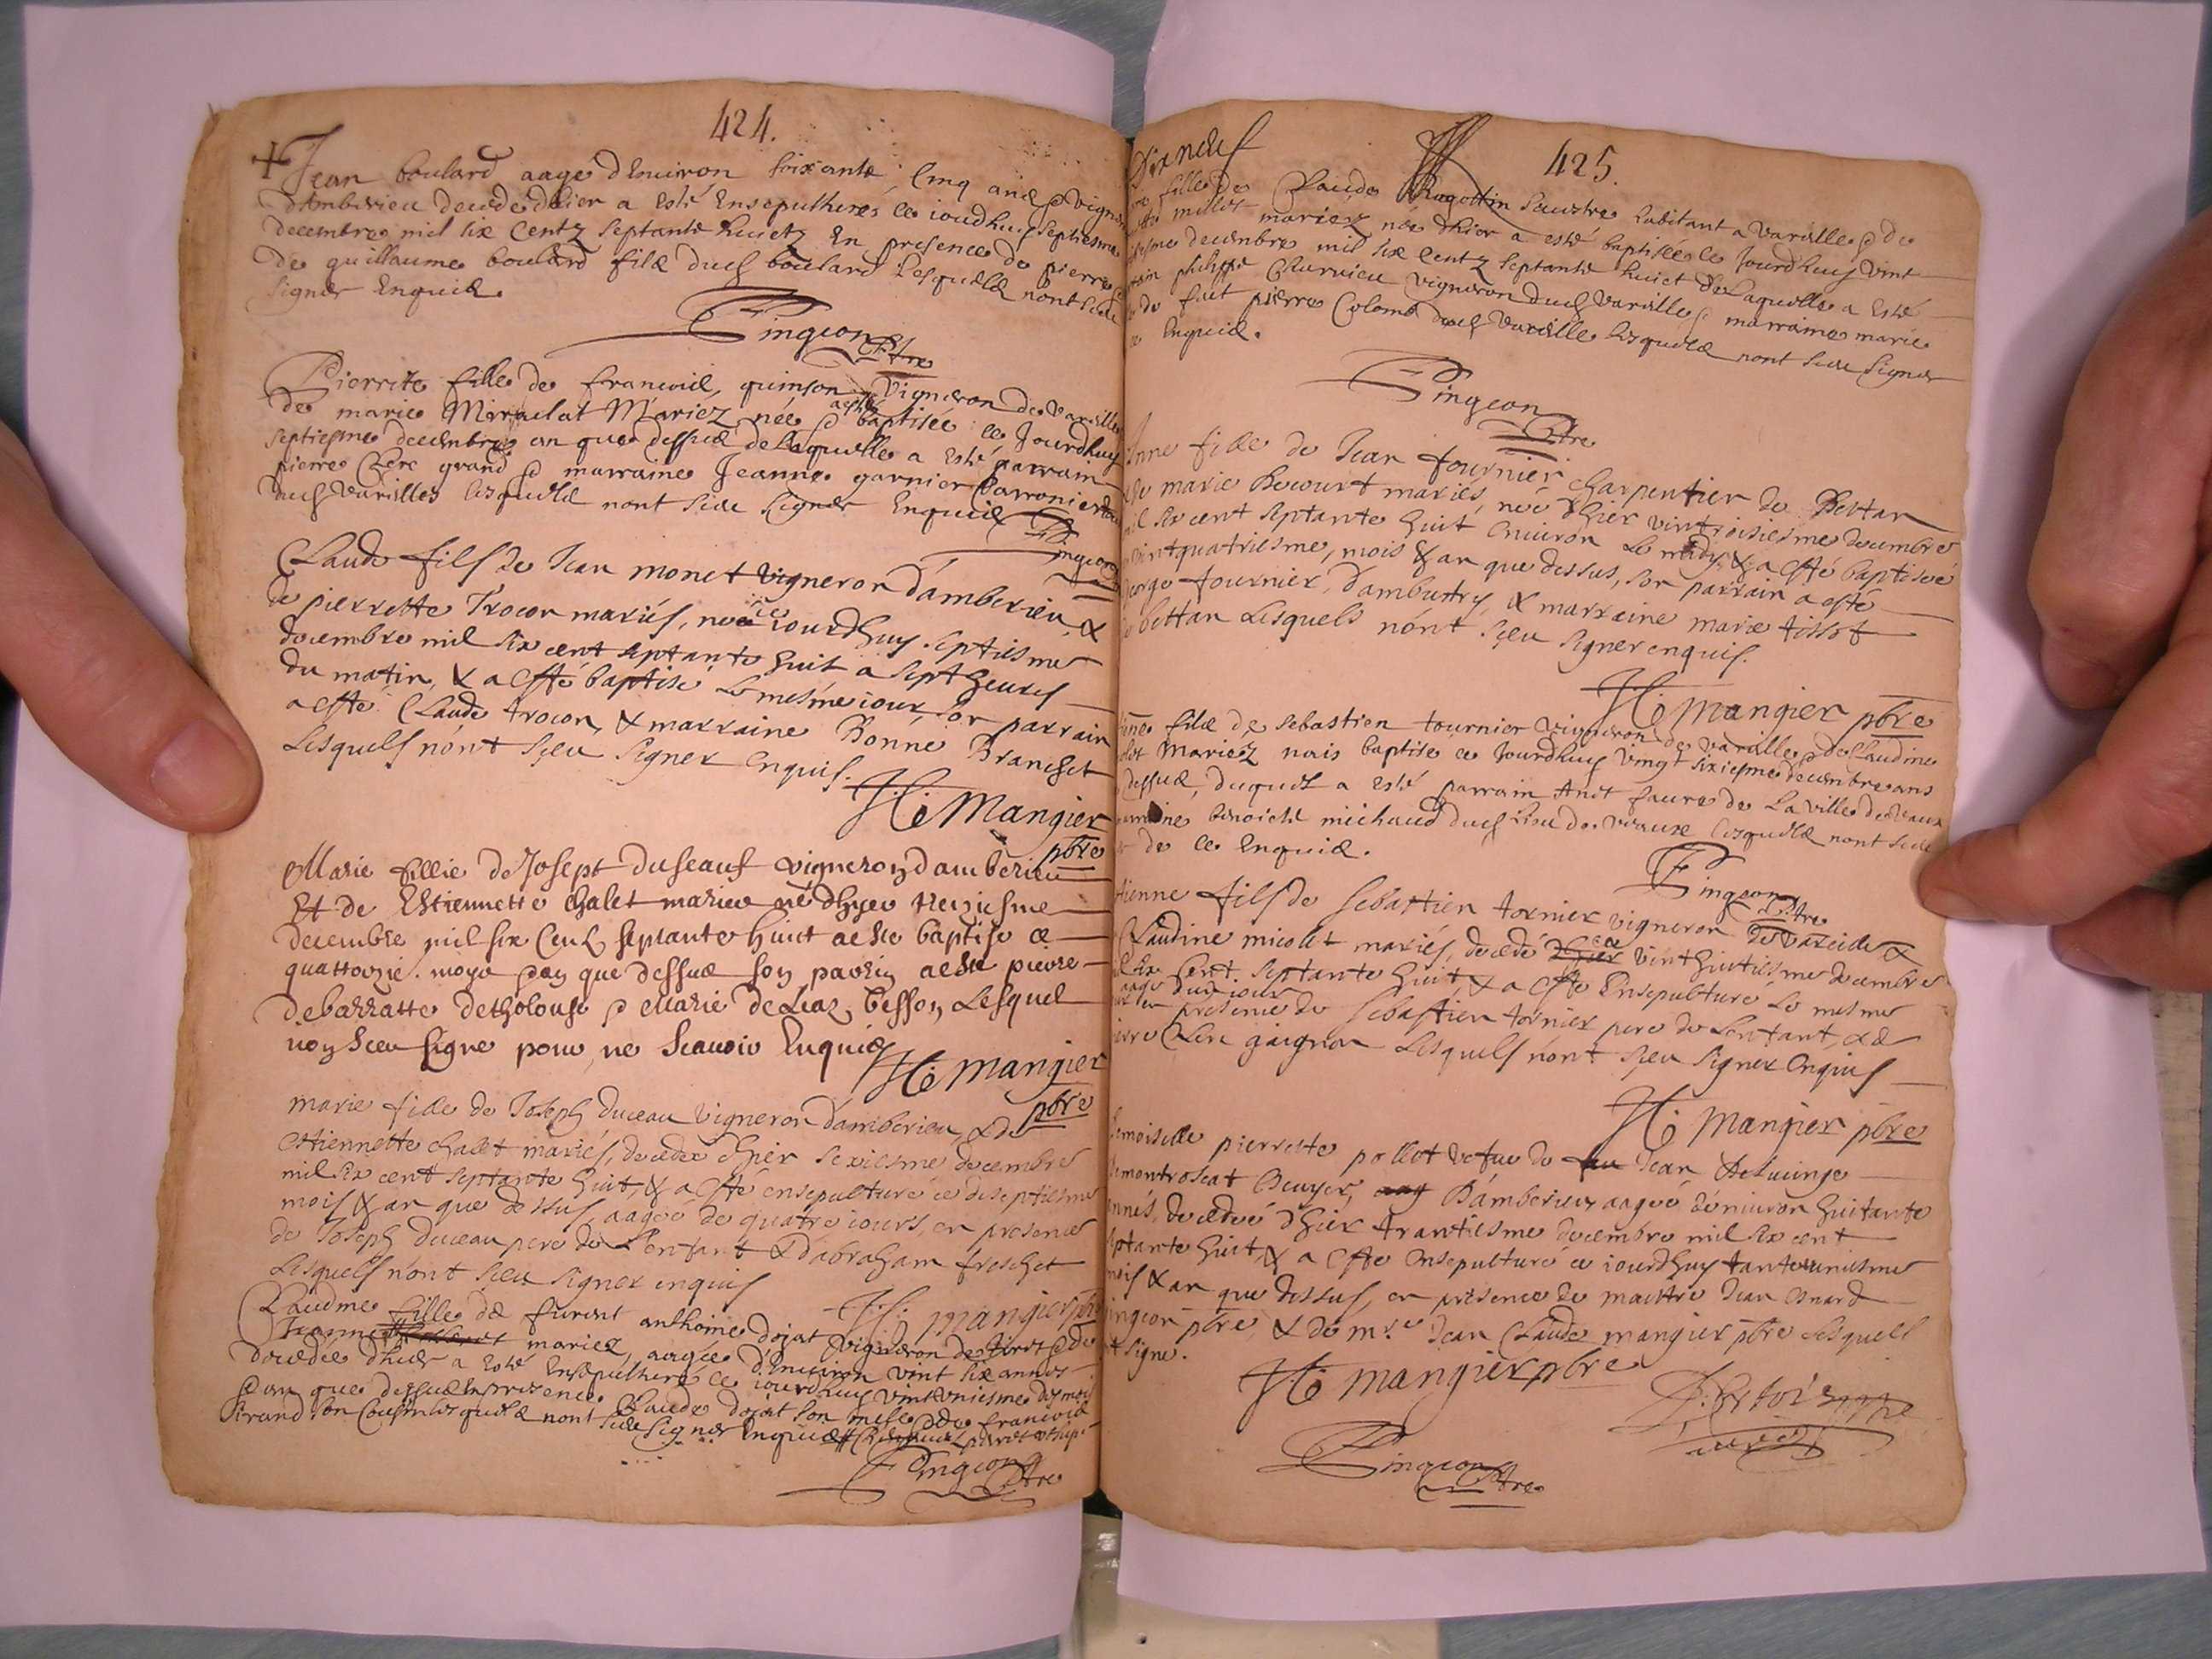 424.
Jean boulard aagé dEnuiron soixante Cinq ans & vigne
dAmberieu decedé dhier a esté Ensepulthuré ce iourdhuy septiesme
decembre mil six Centz septante huictz En presence de pierre &
de guillaume boulard filz dud boulard Lesquelz nont sceu
signer Enquis.
Pingeon Ptre
Pierrete fille de francois quinson Vigneron de Vareilles
de marie Miraclat Mariez née & baptisée ce Jourdhuy
septiesme decembre an que dessus de laquelle a esté parrain
pierre Clerc grand & marraine Jeanne garnier
dud Vareilles lesquelz nont sceu signer Enquis
Pingeon
Claude fils de Jean monet vigneron d'amberieu, &
de pierrette Trocon mariés, né ce iourdhuy septiesme
decembre mil six cent septante huit a sept heures
du matin, & a esté baptisé le mesme iour, son parrain
a esté Claude trocon, & marraine Bonne Branchet
Lesquels n'ont sçeu signer enquis.
H: Mangier
pbre
Marie fillie de Josept duseaut vigneron damberieu
Et de Estiennette Chalet maries né dhyer treziesme
decembre mil six Centz septante huict a este baptise ce
quattorzie. moys & an que dessus son parrin a este pierre
debarratte detholouse & Marie de Liaz besson, Lesquel
non sceu signe pour ne scauoir Enquis
H: mangier
pbre
marie fille de Joseph duceau vigneron d'amberieu, & de
estiennette chalet mariés, decedée d'hier sexiesme decembre
mil six cent septante huit, & a esté ensepulturé ce diseptiesme
mois & an que dessus, aagée de quatre iours, en presence
de Joseph duceau pere de L'enfant & d'abraham freschet
Lesquels n'ont sceu signer enquis
H: mangier pbre
Claudine fille de furent anthoine dojat vigneron de & de
Jeanne mariez, aagée d'Enuiron vint six annes
decedée dhier a esté Ensepulthuré ce iourdhuy vint Vniesme des mois
& an que dessus En presence Claude dojat son & de francois
Girand son Cousin lesquelz nont sceu signer Enquis
Pingeon Ptre
425.
fille de Claude Ragottin habitant a Vareilles & de
millet mariez née dhier a esté baptisée ce Jourdhuy vint
decembre mil six Centz septante huict de Laquelle a esté
philippe Charvieu vigneron dud Vareilles, marraine marie
de fait pierre Colomb dud Vareilles lesquelz nont sceu signer
Enquis.
Pingeon
Ptre
Anne fille de Jean fournier charpentier de Bettan
& de marie Becourt mariés, née d'hier vintroisiesme decembre
mil six cent septante huit enuiron le midy, & a esté baptisée
vintquatriesme, mois & an que dessus, son parrain a esté
george fournier, & marraine marie tissot
de bettan Lesquels n'ont sçeu signer enquis.
H: mangier pbre
filz de sebastien tournier vigneron de vareilles & de Claudine
Mariez nais baptise ce Jourdhuy vingt sixiesme decembre ans
dessus, duquel a esté parrain faure de La ville de Vaux
benoicte michaud dud Lieu de Vaux lesquelz nont sceu
de ce Enquis.
Pingeon Ptre
tienne fils de sebastien tornier vigneron de vareille &
Claudine micolet mariés, decedé ce vinthuitiesme decembre
cent septante huit, & a esté Ensepulturé Le mesme
presence de sebastien tornier pere de L'enfant, & de
Clerc gaignon Lesquels n'ont sçeu signer enquis
H: mangier pbre
demoiselle pierrette pollet vefue de feu Jean
de montroseat Escuyer, D'amberieu, aagée d'enuiron huitante
annés, decedée d'hier trantiesme decembre mil six cent
septante huit, & a esté ensepulturé ce iourdhuy
mois & an que dessus, en presence de maistre Jean
pingeon pbre, & de mre. Jean Claude mangier pbre Lesquels
ont signé.
H: mangier pbre
Pingeon Ptre